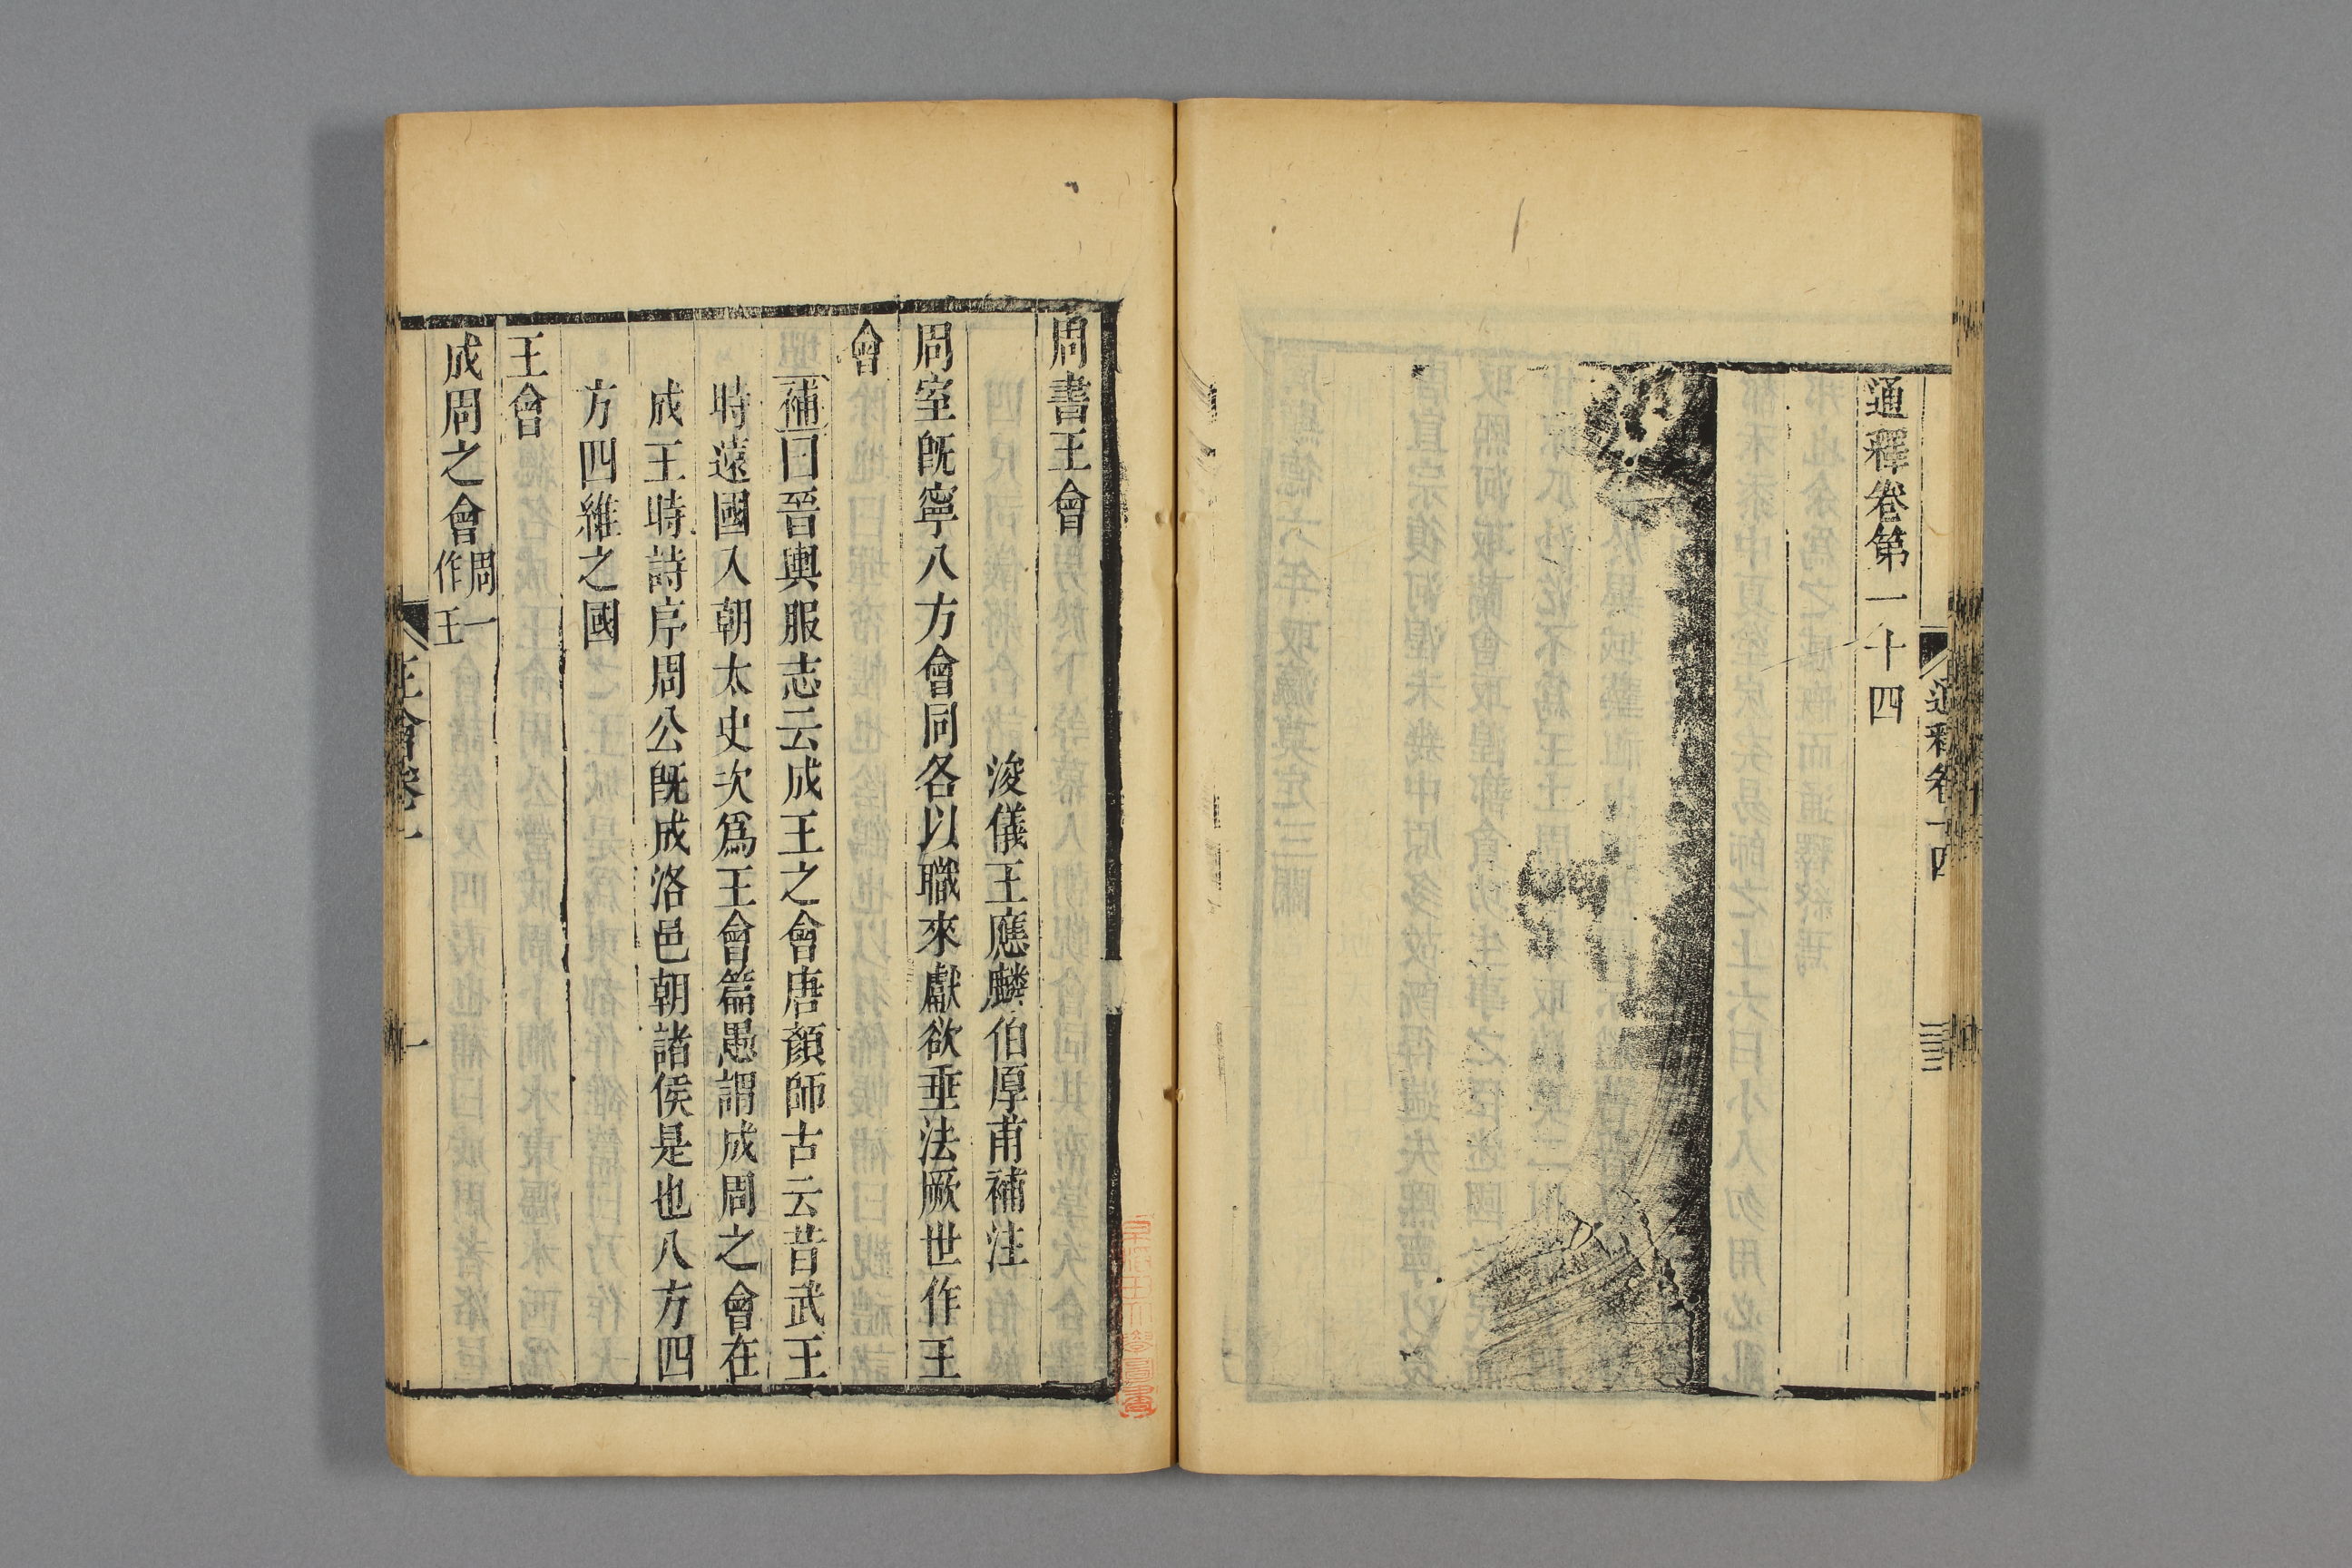 通釋卷第一十四
通釋卷十四
周書王會
浚儀王應麟伯厚甫補注
周室既寧八方會同各以職來獻欲垂法厥世作王
會
補曰晉輿服志云成王之會唐顏師古云昔武王
時遠國入朝太史次爲王會篇愚謂成周之會在
成王時詩序周公既成洛邑朝諸侯是也八方四
方四維之國
王會
成周之會周一作王
王會卷一
一